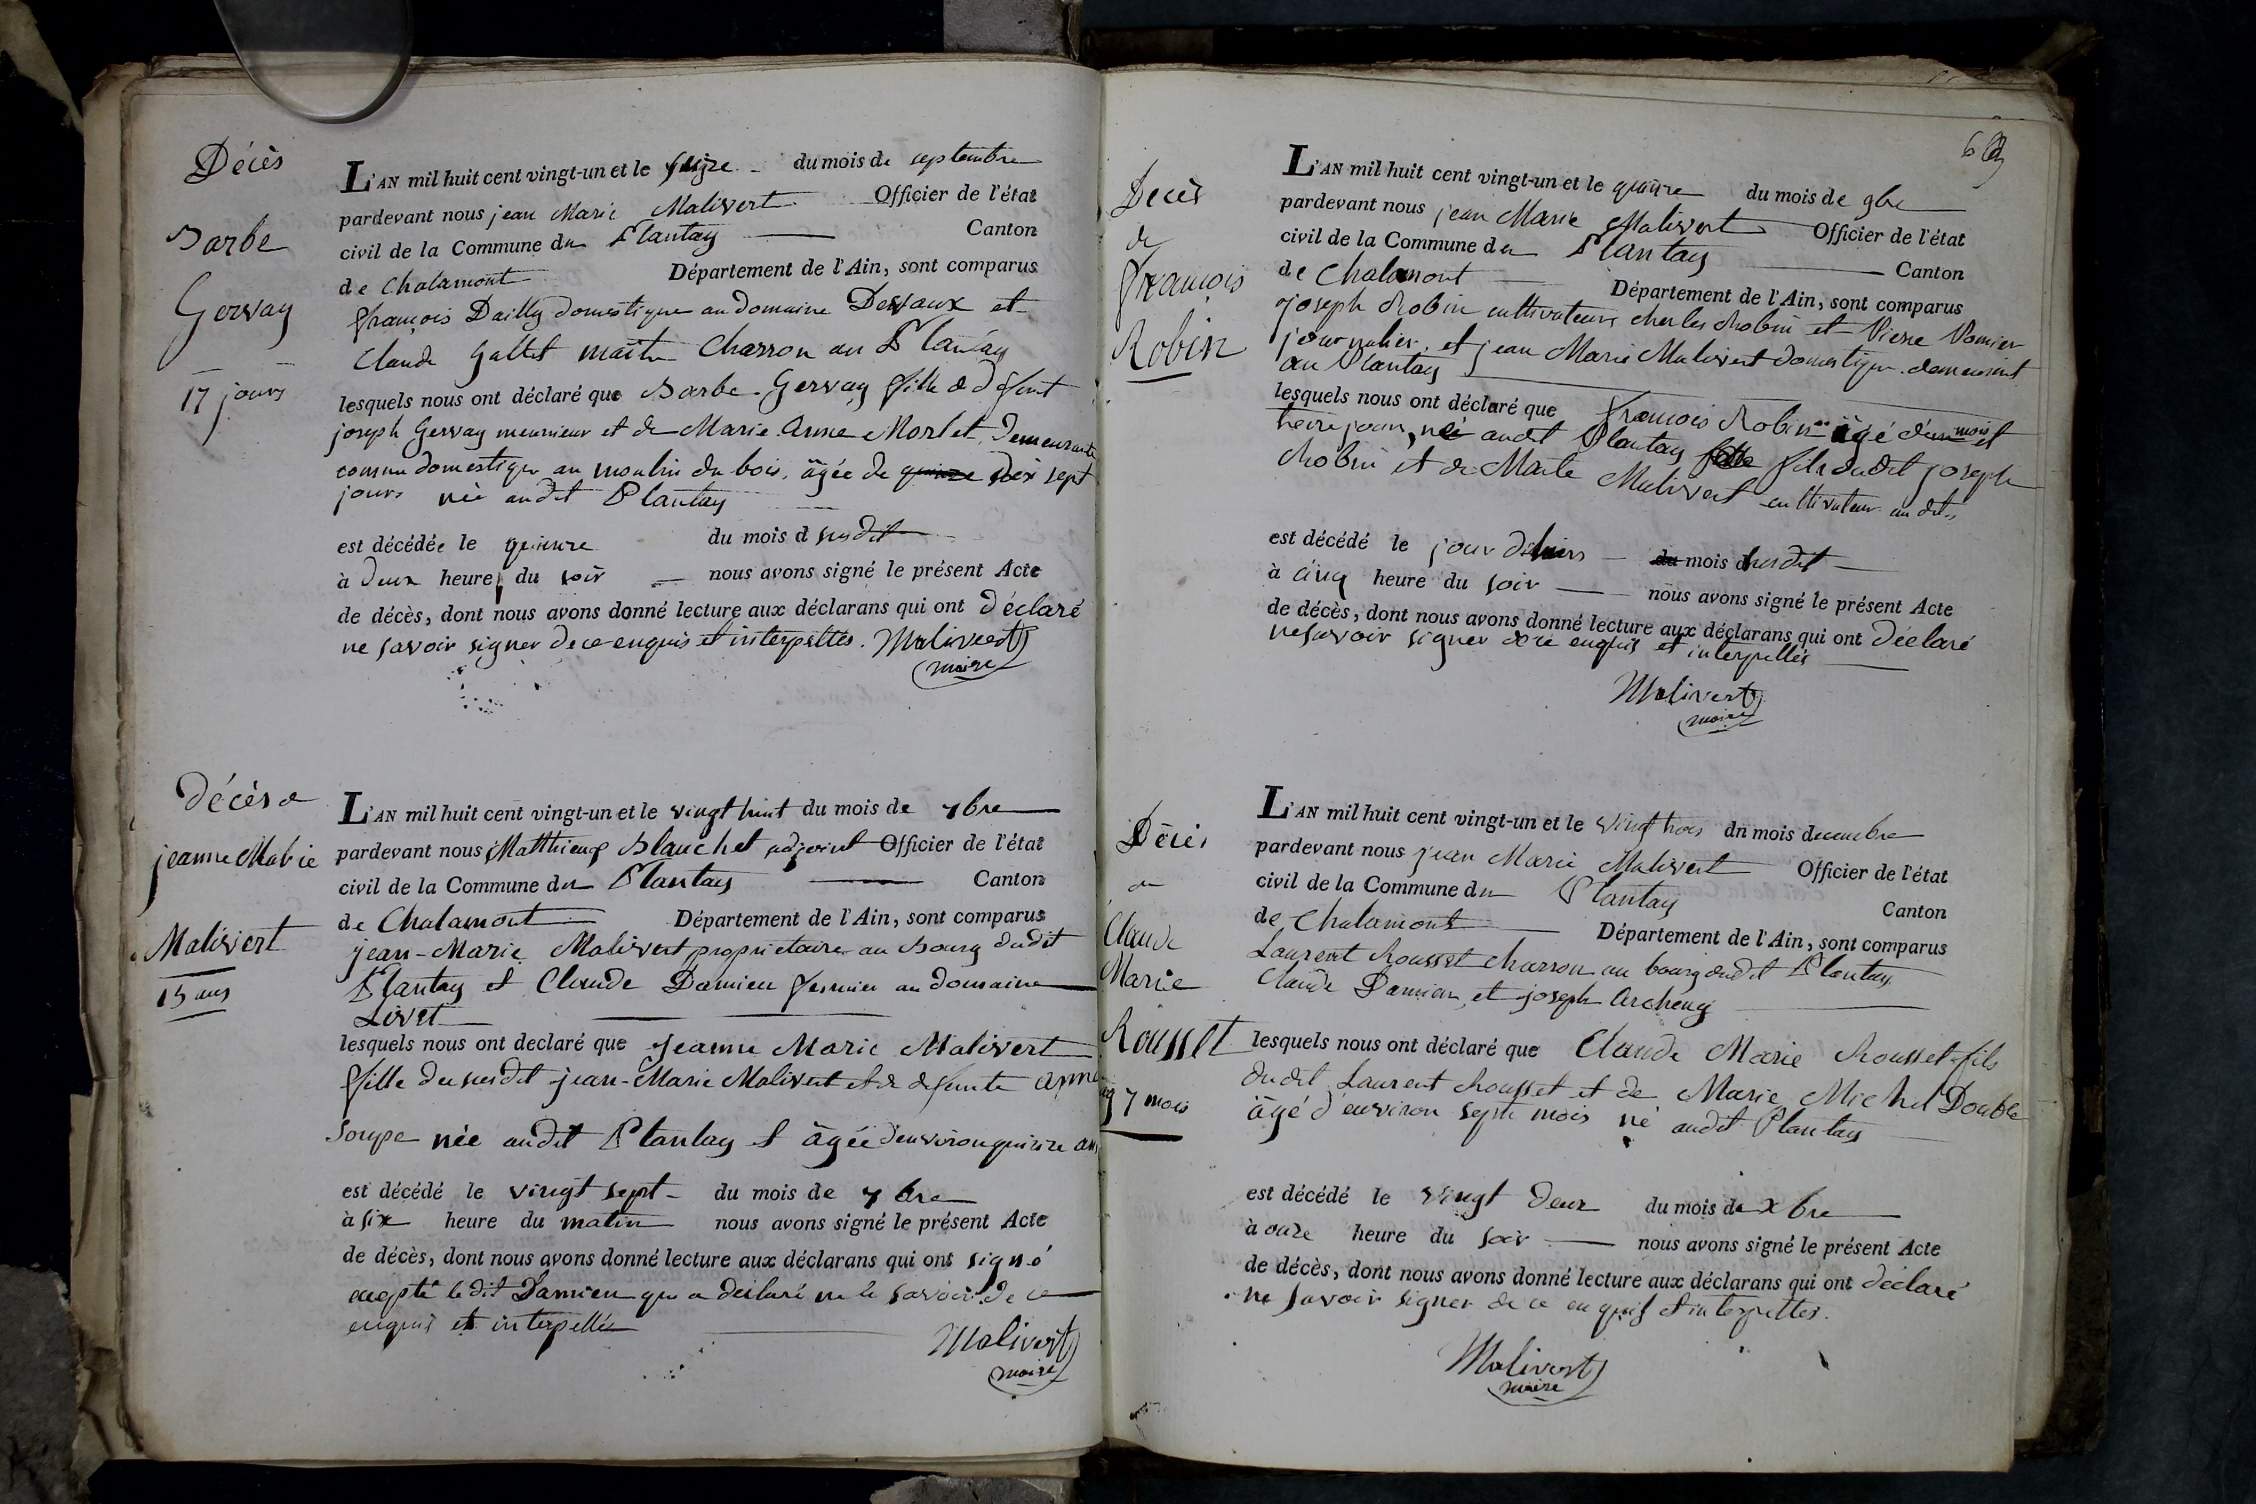 Décès
Barbe
Gervay
17 jours
L'AN mil huit cent vingt-un et le seize du mois de septembre
pardevant nous jean Marie Malivert Officier de l'état
civil de la Commune du Plantay Canton
de Chalamont Département de l'Ain, sont comparus
françois Dailly domestique au domaine Devaux et
Claude Gallet maitre Charron au Plantay
lesquels nous ont déclaré que Barbe Gervay fille de defunt
joseph Gervay meunieur et de Marie Anne Morlet, demeurante
comme domestique au moulin du bois, âgée de quinze dix sept
jours née audit Plantay
est décédée le quinze du mois d susdit
à deux heure du soir nous avons signé le présent Acte
de décès, dont nous avons donné lecture aux déclarans qui ont déclaré
ne savoir signer de ce enquis et interpellés. Malivert
maire
Décès de
jeanne Marie
Malivert
15 ans
L'AN mil huit cent vingt-un et le vingt huit du mois de 7bre
pardevant nous Matthieux Blanchet adjoint Officier de l'état
civil de la Commune du Plantay Canton
de Chalamont Département de l'Ain, sont comparus
jean-Marie Malivert propriétaire au Bourg dudit
Plantay et Claude Damien fermier au domaine
Livet
lesquels nous ont declaré que Jeanne Marie Malivert
fille du susdit jean-Marie Malivert et de defunte Anne
Soupe née audit Plantay et âgée d'environ quinze ans
est décédé le vingt sept du mois de 7bre
à six heure du matin nous avons signé le présent Acte
de décès, dont nous avons donné lecture aux déclarans qui ont signé
excepté le dit Damien qui a déclaré ne le savoir de ce
enquis et interpellés
Malivert
maire
Decès
de
françois
Robin
L'AN mil huit cent vingt-un et le quinze du mois de 9bre
pardevant nous jean Marie Malivert Officier de l'état
civil de la Commune du Plantay Canton
de Chalamont Département de l'Ain, sont comparus
joseph Robin cultivateur charles Robin et Pierre
journalier, et jean Marie Malivert domestique demeurant
au Plantay
lesquels nous ont déclaré que françois Robin âgé d'un mois et
treize jour, né audit Plantay fils dudit joseph
Robin et de Marie Malivert cultivateur audit
est décédé le jour du mois susdit
à cinq heure du soir nous avons signé le présent Acte
de décès, dont nous avons donné lecture aux déclarans qui ont déclaré
ne savoir signer de ce enquis et interpellés
Malivert
maire
Décès
de
Claude
Marie
Rousset
7 mois
L'AN mil huit cent vingt-un et le vingt trois du mois decembre
pardevant nous jean Marie Malivert Officier de l'état
civil de la Commune du Plantay Canton
de Chalamont Département de l'Ain, sont comparus
Laurent Rousset charron au bourg dudit Plantay
Claude Damien, et joseph Archeny
lesquels nous ont déclaré que Claude Marie Rousset fils
dudit Laurent Rousset et de Marie Michel Double
âgé d'environ sept mois né audit Plantay
est décédé le vingt deux du mois de Xbre
à onze heure du soir nous avons signé le présent Acte
de décès, dont nous avons donné lecture aux déclarans qui ont déclaré
ne savoir signer de ce enquis et interpellés.
Malivert
maire